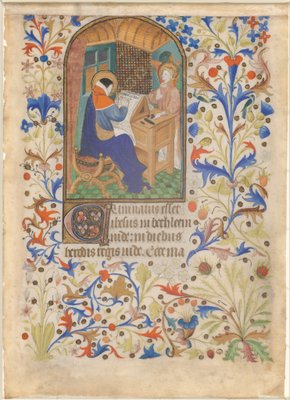 Cum natus esset
ihesus in bethleem
iude: in diebus
herodis regis iude. Ecce ma